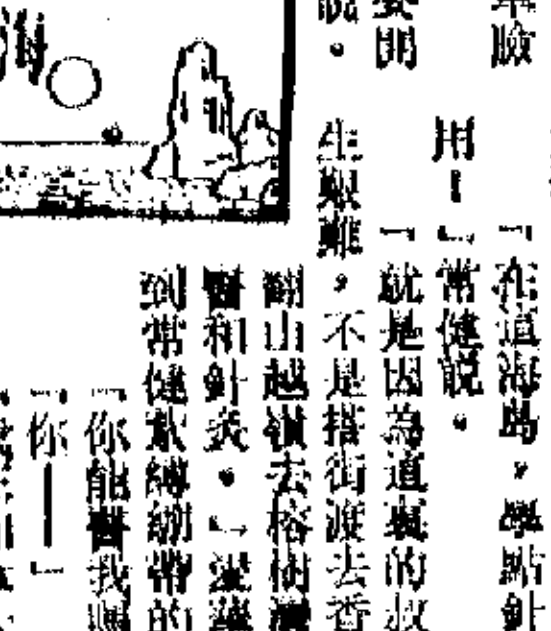 臉
「在這海島，學點針
用！」常健説。
要開
「就是因為這裏的叔
説。
生艱難，不是搭街渡去香
翻山越嶺去榕樹灣
醫和針灸。」愛蓮
到常健軟縛綳帶的
「你能醫我
「你——」
海